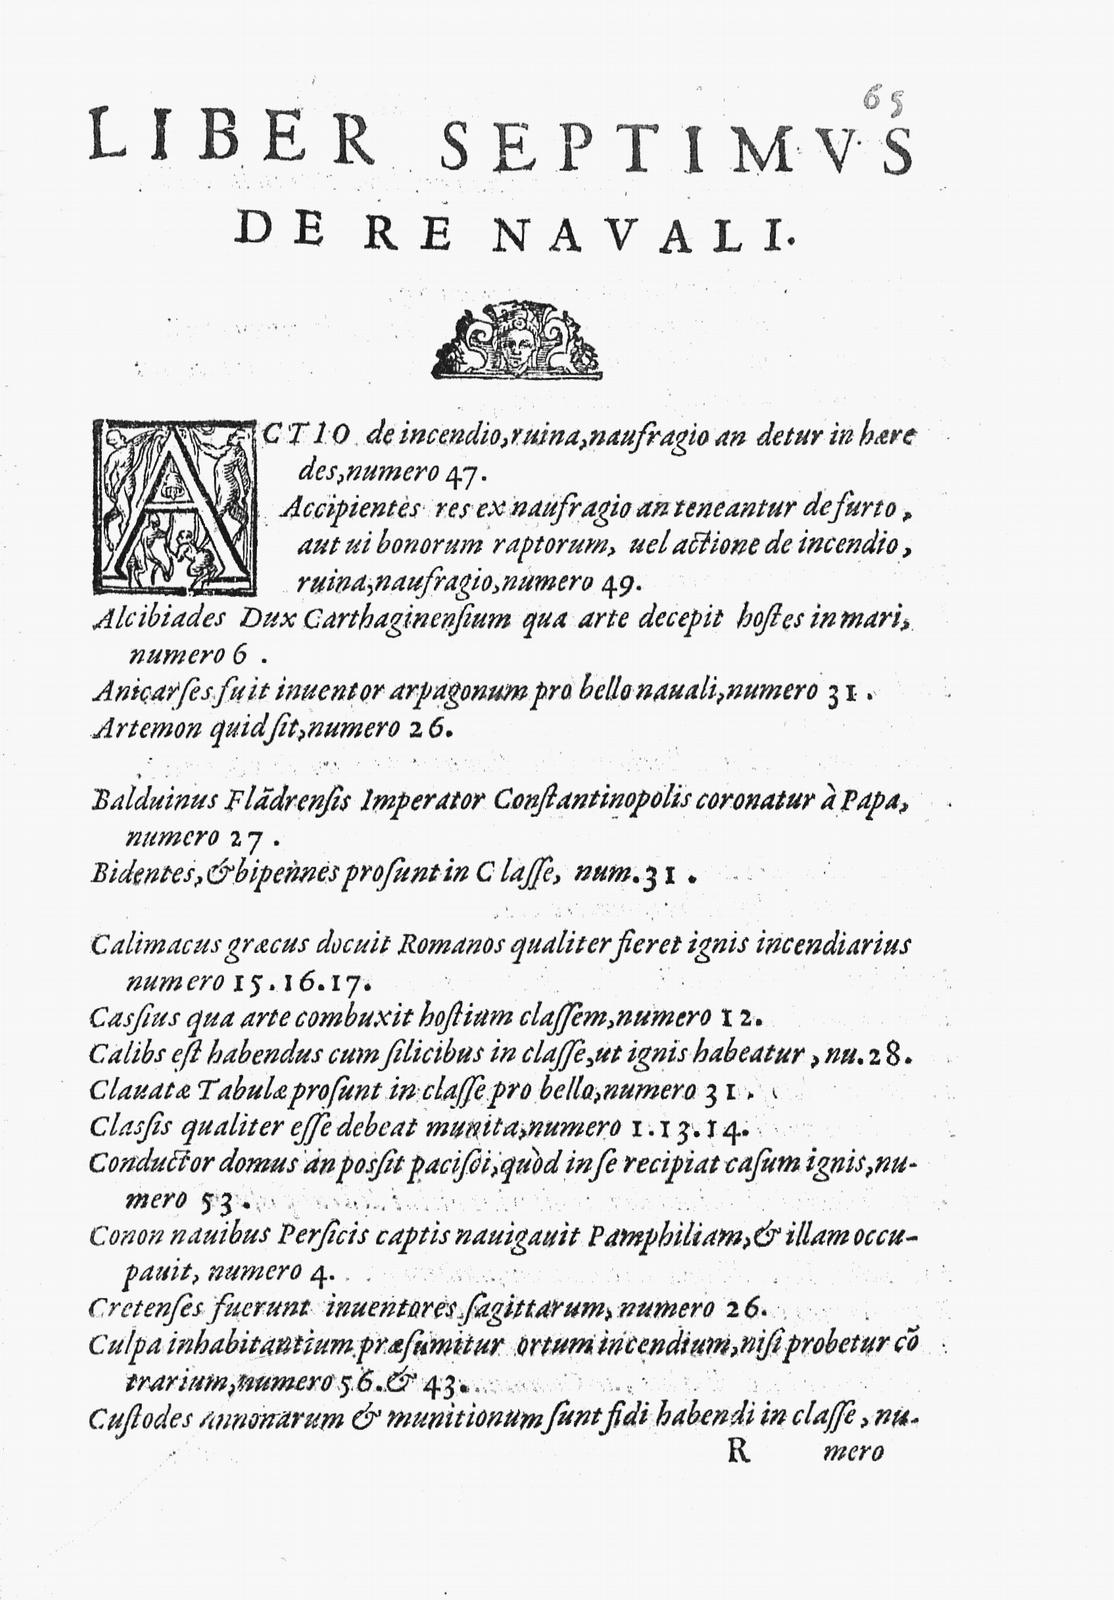 65
LIBER SEPTIMVS
DE RE NAVALI.
ACTIO de incendio, ruina, naufragio an detur in hære
des, numero 47.
Accipientes res ex naufragio an teneantur de furto,
aut ui bonorum raptorum, uel actione de incendio,
ruina, naufragio, numero 49.
Alcibiades Dux Carthaginenſium qua arte decepit hoſtes in mari,
numero 6.
Anicarſes fuit inuentor arpagonum pro bello nauali, numero 31.
Artemon quid ſit, numero 26.
Balduinus Flādrenſis Imperator Conſtantinopolis coronatur à Papa,
numero 27.
Bidentes, & bipennes proſunt in Claſſe, num. 31.
Calimacus græcus docuit Romanos qualiter fieret ignis incendiarius
numero 15.16.17.
Caſsius qua arte combuxit hoſtium claſſem, numero 12.
Calibs eſt habendus cum ſilicibus in claſſe, ut ignis habeatur, nu. 28.
Clauatæ Tabulæ proſunt in claſſe pro bello, numero 31.
Claſsis qualiter eſſe debeat munita, numero 1.13.14.
Conductor domus an poſsit paciſci, quòd in ſe recipiat caſum ignis, nu-
mero 53.
Conon nauibus Perſicis captis nauigauit Pamphiliam, & illam occu-
pauit, numero 4.
Cretenſes fuerunt inuentores ſagittarum, numero 26.
Culpa inhabitantium præſumitur ortum incendium, niſi probetur cō
trarium, numero 56. & 43.
Cuſtodes annonarum & munitionum ſunt fidi habendi in claſſe, nu-
R mero